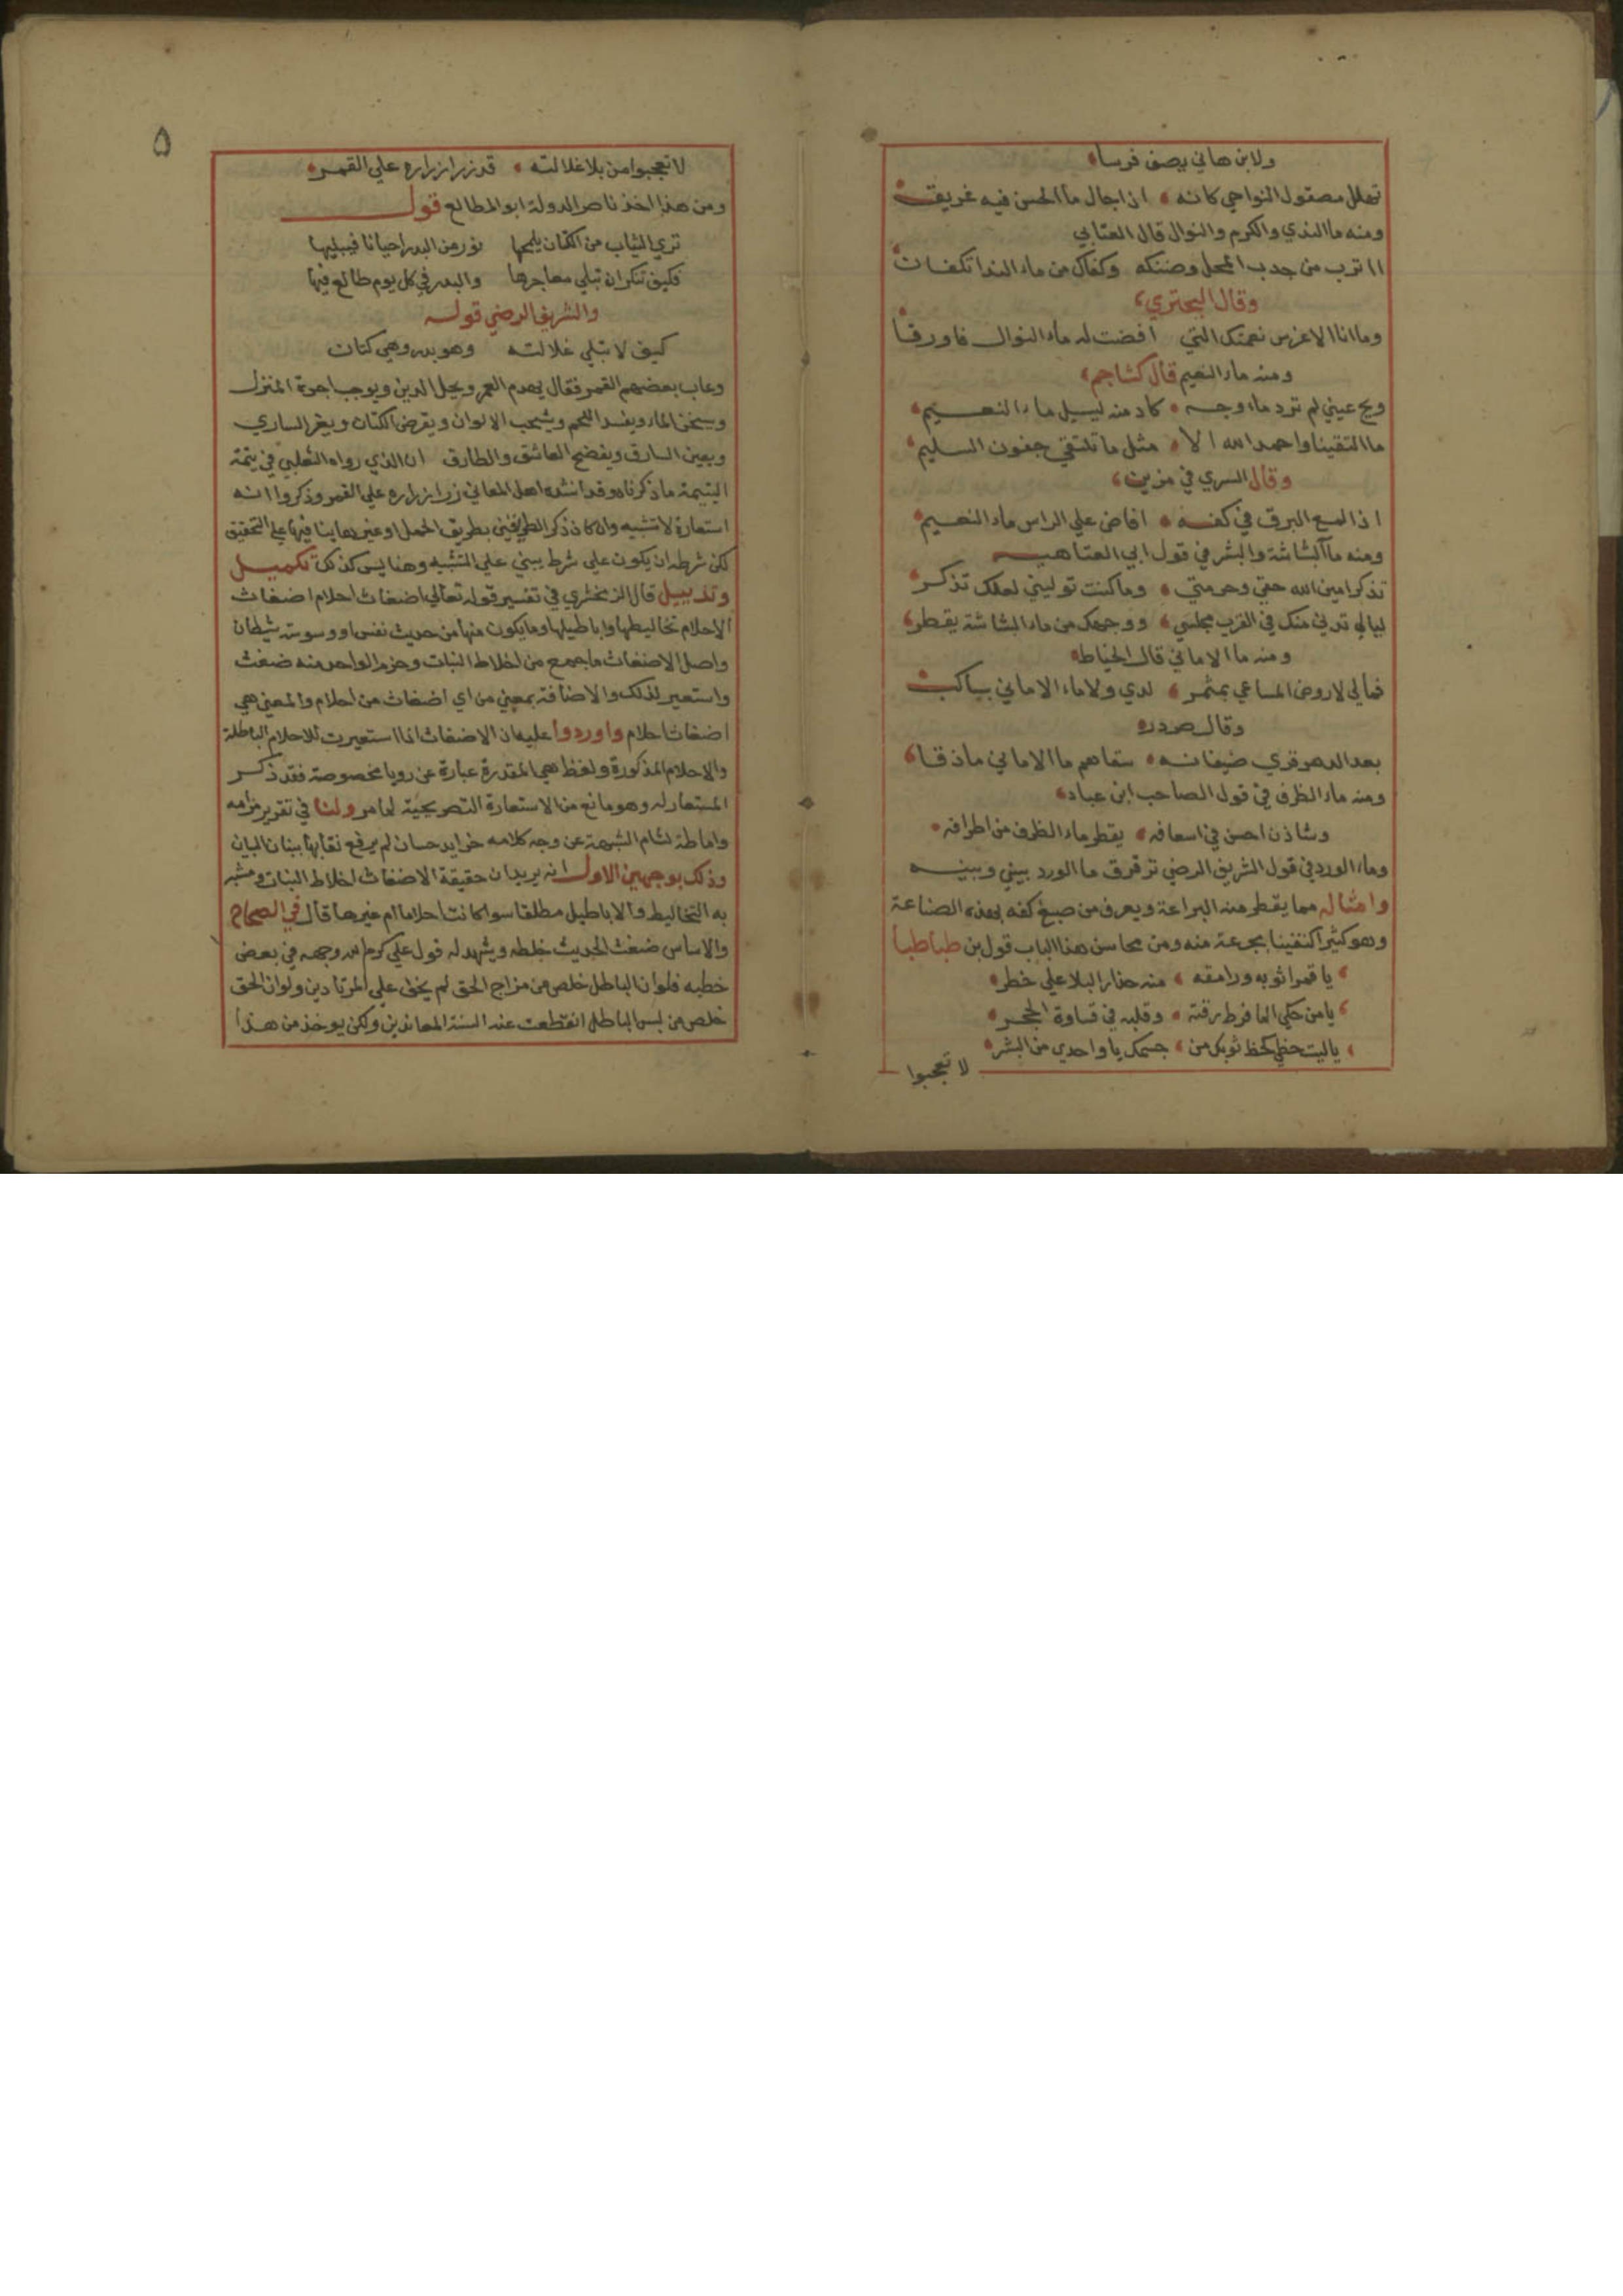 ولابن هاني يصف فرسا
تهلل مصقول النواحي كانه اذا جال ما الحسن فيه غريق
ومنه ما الندي والكرم والنوال قال العتابي
ااترب من جدب المحل وضنكه وكفاك من ماء الندا تكفان
وقال البحتري
وما انا الا غرس نعمتك التي افضت له ماء النوال فاورقا
ومنه ماء النعيم قال كشاجم
ويح عيني لم ترد ماء وجه كاد منه ليسيل ماء النعيم
ما التقينا واحمد الله الا مثل ما تلتقي جفون السليم
وقال السري في مزين
اذا لمع البرق في كفه افاض علي الراس ماء النعيم
ومنه ما البشاشة والبشر في قول ابي العتاهيه
تذكر امين الله حقي وحرمتي وما كنت توليني لعلك تذكر
ليالي تدني منك في القرب مجلسي ووجهك من ماء البشاشة يقطر
ومنه ما الاماني قال الخياط
فمالي لا روض المساعي بمثمر لدي ولا ماء الاماني بساكب
وقال صردر
بعد الدهر قري ضيفانه سقاهم ما الاماني ماذقا
ومنه ماء الظرف في قول الصاحب ابن عباد
وشاذن احسن في اسعافه يقطر ماء الظرف من اطرافه
وماء الورد في قول الشريف الرضي ترقرق ما الورد بيني وبينه
وامثاله مما يقطر منه البراعة ويعرف من صبغ كفه بهذه الصناعة
وهو كثير اكتفينا بجرعة منه ومن محاسن هذا الباب قول بن طباطبا
يا قمرا ثوبه ورامقه منه حذار البلا علي خطر
يا من حكي الما فرط رقته وقلبه في قساوة الحجر
يا ليت حظي كحظ ثوبك من جسمك يا واحدي من البشر
لا تعجبوا
٥
لا تعجبوا من بلا غلالته قد زر ازراره علي القمر
ومن هذا اخذ ناصر الدولة ابو المطالع قوله
تري الثياب من الكتان يلمحها نور من البدر احيانا فيبليها
فكيف تنكر ان تبلي معاجرها والبدر في كل يوم طالع فيها
والشريف الرضي قوله
كيف لا تبلي غلالته وهو بدر وهي كتان
وعاب بعضهم القمر فقال يهدم العمر ويحل الدين ويوجب اجرة المنزل
ويسخن الماء ويفسد اللحم ويشحب الالوان ويقرض الكتان ويغر الساري
ويعين السارق ويفضح العاشق والطارق ان الذي رواه الثعلبي في يتمة
اليتيمة ما ذكرناه وقد انشده اهل المعاني زر ازراره علي القمر وذكروا انه
استعارة لا تشبيه وان كان ذكر الطرفين بطريق الحمل او غيره ينافيها علي التحقيق
لكن شرطه ان يكون علي شرط يبني علي التشبيه وهنا ليس كذلك تكميل
وتذييل قال الزمخشري في تفسير قوله تعالي اضغاث احلام اضغاث
الاحلام تخاليطها واباطيلها وما يكون منها من حديث نفس او وسوسة شيطان
واصل الاضغاث ما جمع من اخلاط النبات وحزم الواحد منه ضغث
واستعير لذلك والاضافة بمعني من اي اضغاث من احلام والمعني هي
اضغاث احلام واوردوا عليه ان الاضغاث اذا استعيرت للاحلام الباطلة
والاحلام المذكورة ولفظ هي المقدرة عبارة عن رويا مخصوصة فقد ذكر
المستعار له وهو مانع من الاستعارة التصريحية لما مر ولنا في تقرير مرامه
واماطة لثام الشبهة عن وجه كلامه خرايد حسان لم يرفع نقابها ببنان البيان
وذلك بوجهين الاول انه يريد ان حقيقة الاضغاث اخلاط النبات ومشبه
به التخاليط والاباطيل مطلقا سوا كانت احلاما ام غيرها قال في الصحاح
والاساس ضغث الحديث خلطه ويشهد له قول علي كرم الله وجهه في بعض
خطبه فلو ان الباطل خلص من مزاج الحق لم يخف علي المرتادين ولو ان الحق
خلص من لبس الباطل انقطعت عنه السنة المعاندين ولكن يوخذ من هذا